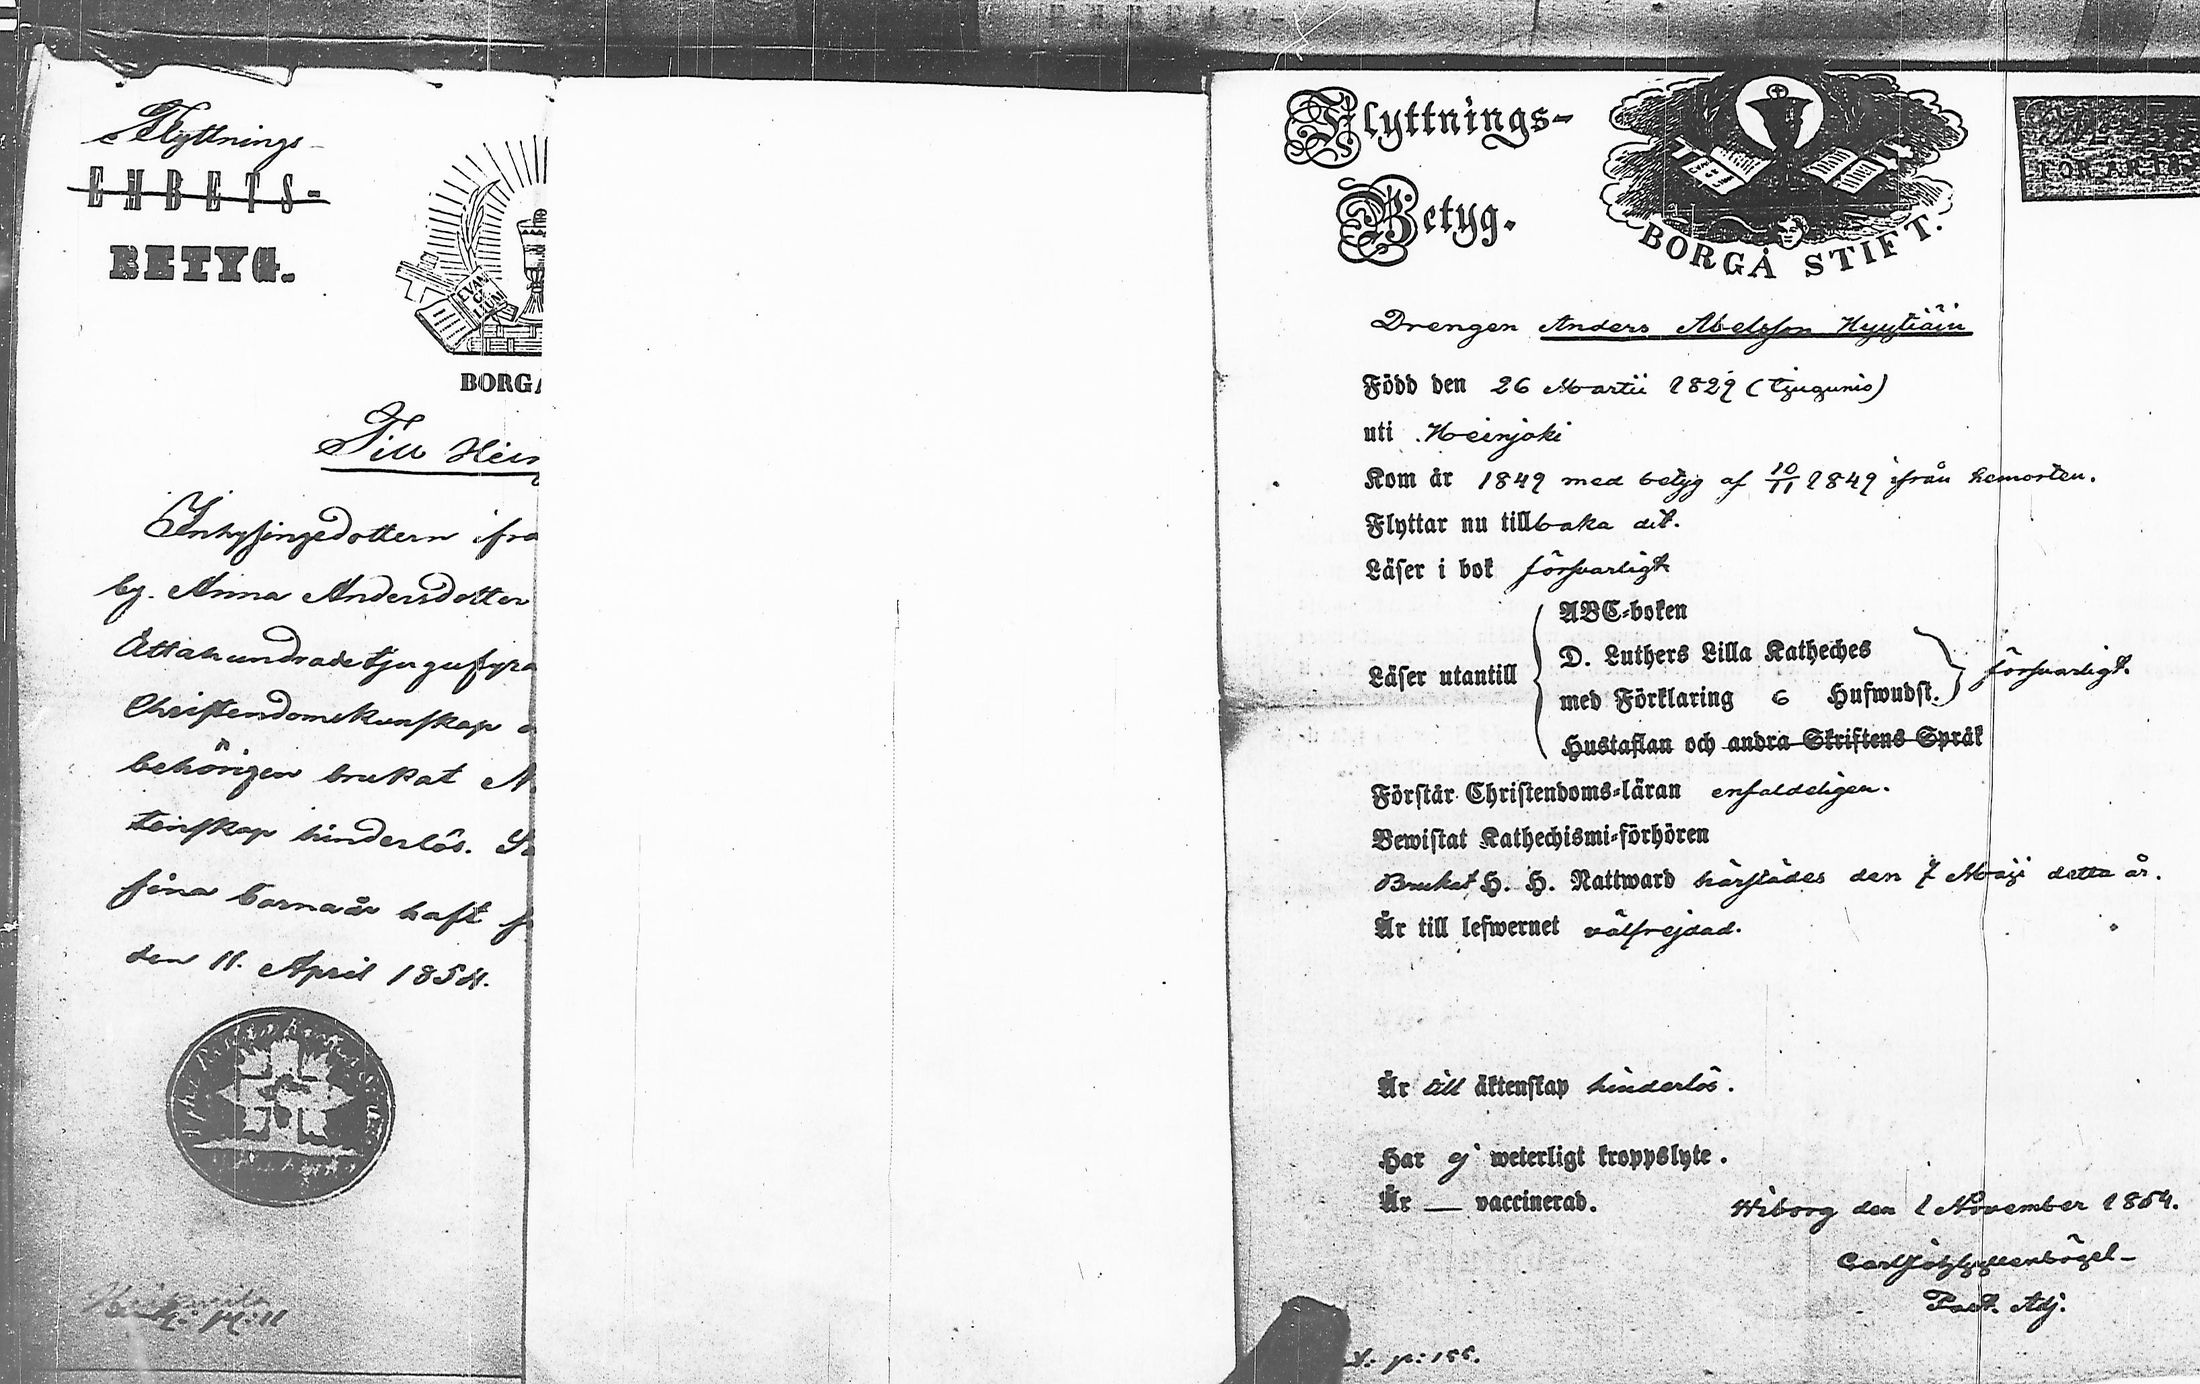 Flyttnings-
EHBETS-
BETYG.
EVAN
GE
LIUM
BORGÅ
Till Hein
Inhysingsdottern ifrå
by. Anna Andersdotter
Åttahundradetjugufyra
Christendomskunskap
behörigen brukat N
tenskap hinderlös.
sina barnaår haft
den 11. April 1854.
p:11
Flyttnings-
Betyg.
BORGÅ STIFT.
FÖR
Drengen Anders Abelsson Hyytiäin
Född den 26 Martii 1829 (tjugunio)
uti Heinjoki
Kom år 1849 med betyg af 10/11 1849 ifrån hemorten.
Flyttar nu tillbaka dit.
Läser i bok försvarligt
ABC-boken
D. Luthers Lilla Katheches
Läser utantill med Förklaring 6 Hufwudst. försvarligt.
Hustaflan och andra Skriftens Språk
Förstår Christendoms-läran enfaldeligen.
Bewistat Kathechismi-förhören
Brukat H. H. Nattward härstädes den 7 Maji detta år.
Är till lefwernet välfrejdad.
Är till äktenskap hinderlös.
Har ej weterligt kroppslyte.
Är — vaccinerad.
Wiborg den 1 November 1854.
Past. Adj.
p: 155.